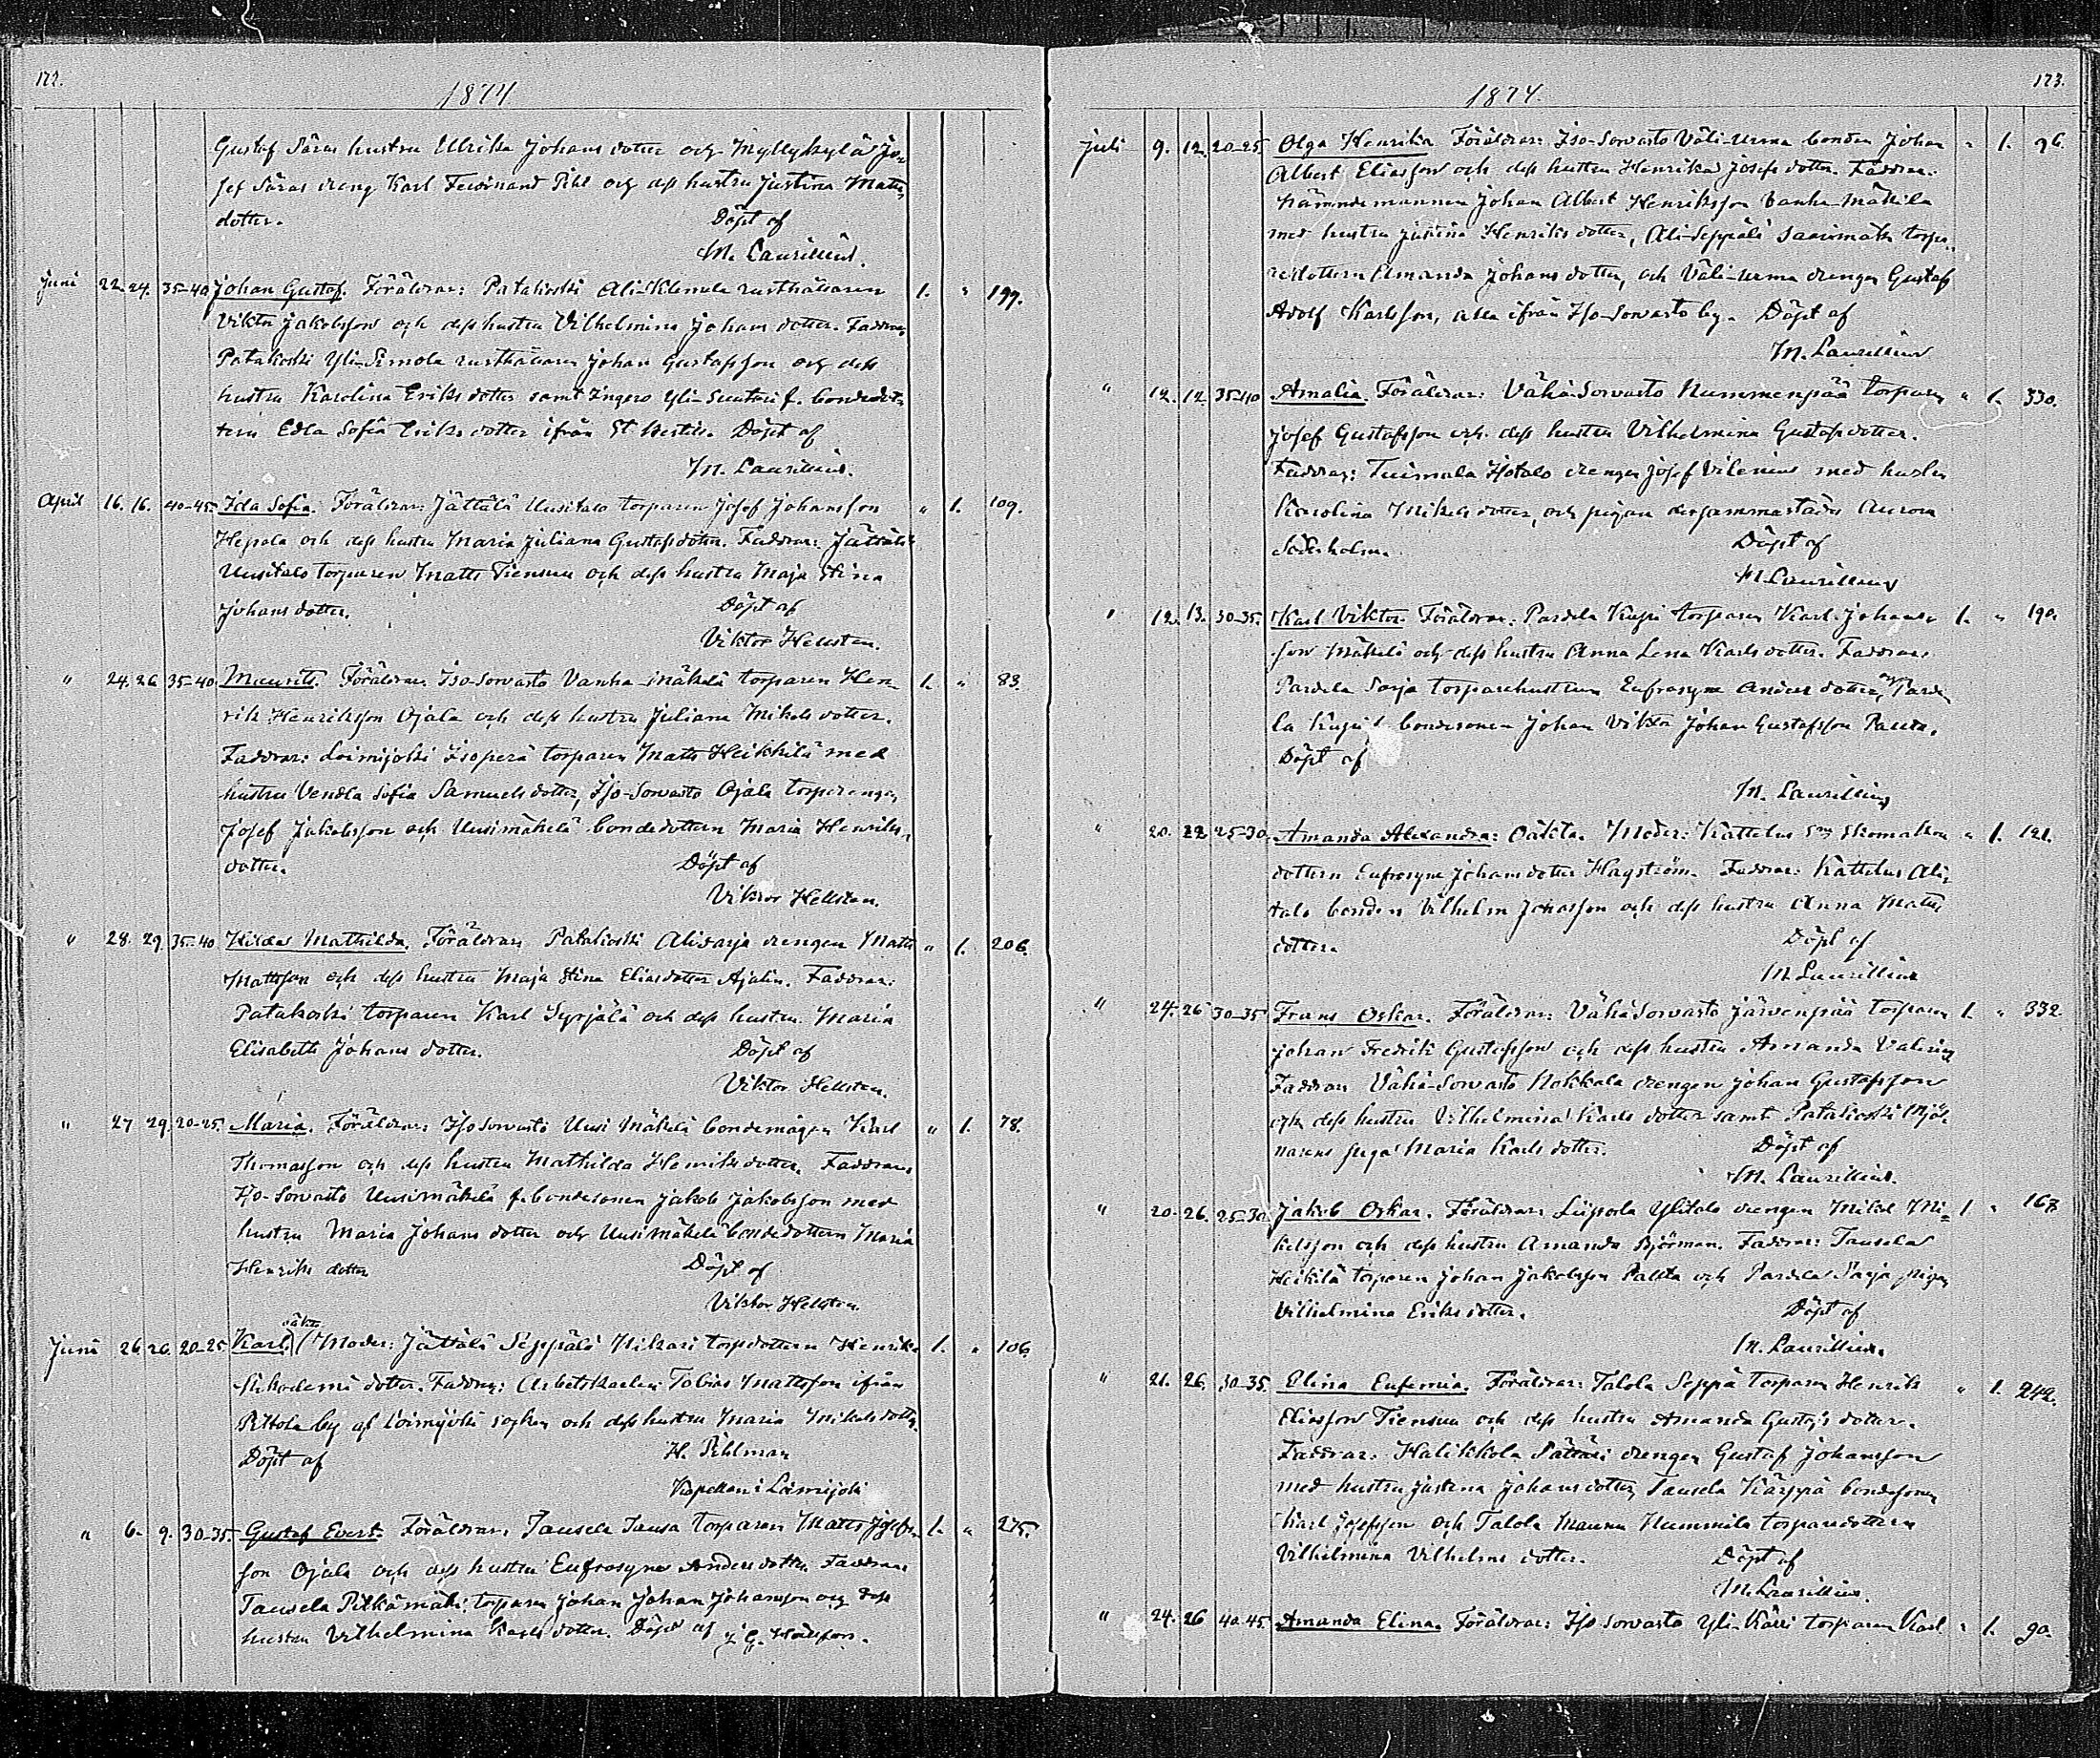 172.
1874
Gustaf Säras hustru Ulrika Johans dotter och Myllykylä Jo-
sef Säras dreng Karl Ferdinand Pihl och dess hustru Justina Matts
dotter. Döpt af
M. Laurellius.
Juni 22. 24. 35-40 Johan Gustaf. Föräldrar: Patakoski Ali-Klemela rusthållaren 1. " 199.
Viktor Jakobsson och dess hustru Vilhelmina Johans dotter. Faddrar:
Patakoski Yli-Simola rusthållaren Johan Gustafsson och dess
hustru Karolina Eriks dotter samt Ingero Yli-Suutari f. bondedot-
tern Edla Sofia Eriks dotter ifrån St. Döpt af
M. Laurellius.
April 16. 16. 40-45 Ida Sofia. Föräldrar: Jättälä Uusitalo torparen Josef Johansson " 1. 109.
Heposla och dess hustru Maria Juliana Gustafsdotter. Faddrar: Jättälä
Uusitalo torparen Matts Tiensuu och dess hustru Maja Stina
Johansdotter. Döpt af
Viktor Hellsten.
" 24. 26 35-40 Maurits. Föräldrar: Iso-Sorvasto Vanha-Mäkelä torparen Hen- 1. " 83.
rik Henriksson Ojala och dess hustru Juliana Mikels dotter.
Faddrar: Loimijoki Isoperä torparen Matts Heikkilä med
hustru Vendla Sofia Samuels dotter, Iso-Sorvasto Ojala torpdrengen
Josef Jakobsson och Uusimäkelä bondedottern Maria Henriks
dotter. Döpt af
Viktor Hellsten.
" 28. 29. 35-40 Hilda Mathilda. Föräldrar: Patakoski Alisarja drengen Matts " 1. 206.
Mattsson och dess hustru Maja Stina Eliasdotter Ajalin. Faddrar:
Patakoski torparen Karl Syrjälä och dess hustru Maria
Elisabeth Johans dotter. Döpt af
Viktor Hellsten.
" 27 29. 20-25. Maria. Föräldrar: Iso Sorvasto Uusi Mäkelä bondemågen Karl " 1. 78.
Thomasson och dess hustru Mathilda Henriks dotter. Faddrar:
Iso-Sorvasto Uusimäkelä f. bondesonen Jakob Jakobsson med
hustru Maria Johans dotter och Uusimäkelä bondedottern Maria
Henriks dotter Döpt af
Viktor Hellsten.
oäkta
Juni 26 26. 20-25 Karl. Moder: Jättälä Seppälä Hikari torpdottern Henrika 1. " 106.
Nikodemi dotter. Faddrar: Arbetskarlen Tobias Mattsson ifrån
Pittola by af Loimijoki socken och dess hustru Maria Mikels dotter.
Döpt af H. Pihlman
Kapellan i Loimijoki
" 6. 9. 30-35. Gustaf Evert. Föräldrar: Tausela Tausa torparen Matts Josefs- 1. " 275.
son Ojala och dess hustru Eufrosyne Anders dotter. Faddrar:
Tausela Pitkämäki torparen Johan Johan Johansson och dess
hustru Vilhelmina Karls dotter. Döpt af G. Hallfors.
173.
1874.
Juli 9. 12. 20-25 Olga Henrika Föräldrar: Iso-Sorvasto Väli-Urma bonden Johan " 1. 96.
Albert Eliasson och dess hustru Henrika Josefs dotter. Faddrar:
Nämndemannen Johan Albert Henriksson Vanha-Mäkilä
med hustru Justina Henriks dotter, Ali-Seppälä Saarimäki torpa-
redottern Amanda Johans dotter, och Väli-Urma drengen Gustaf
Adolf Karlsson, alla ifrån Iso-Sorvasto by. Döpt af
M. Laurellius
" 12. 12. 35-40 Amalia. Föräldrar: Vähä-Sorvasto Nummenpää torparen " 1. 330.
Josef Gustafsson och dess hustru Vilhelmina Gustafsdotter.
Faddrar: Tuimala Isotalo drengen Josef Vilenius med hustru
Karolina Mikels dotter, och pigan dersammastädes Aurora
Söderholm. Döpt af
M. Laurellius
" 12. 13. 30-35. Karl Viktor. Föräldrar: Pardela Kuppi torparen Karl Johans- 1. " 190.
son Mäkelä och dess hustru Anna Lena Karls dotter. Faddrar:
Pardela Sarja torparehustrun Eufrosyne Anders dotter, och Parde
la bondesonen Johan Viktor Johan Gustafsson Pauta.
Döpt af
M. Laurellius
" 20. 22. 25-30. Amanda Alexandra: Oäkta. Moder: Kattelus Skomakare " 1. 121.
dottern Eufrosyne Johans dotter Hagström. Faddrar: Kattelus Ali-
talo bonden Vilhelm Jonasson och dess hustru Anna Matts
dotter. Döpt af
M. Laurellius
" 24. 26 30-35 Frans Oskar. Föräldrar: Vähä Sorvasto Järvenpää torparen 1. " 332.
Johan Fredrik Gustafsson och dess hustru Amanda Valerius
Faddrar: Vähä-Sorvasto Nokkala drengen Johan Gustafsson
och dess hustru Vilhelmina Karls dotter samt Patakoski Mjöl-
narens piga Maria Karls dotter. Döpt af
M. Laurellius.
" 20. 26. 25-30. Jakob Oskar. Föräldrar: Liipola Ylitalo drengen Mikel Mi- 1. " 167
kelsson och dess hustru Amanda Björman. Faddrar: Tausela
Heikilä torparen Johan Jakobsson Pauta och Pardela Sarja pigan
Vilhelmina Eriks dotter. Döpt af
M. Laurellius.
" 21. 26. 30-35. Elina Eufemia. Föräldrar: Talola Seppä torparen Henrik " 1. 242.
Eliasson Tiensuu och dess hustru Amanda Gustafs dotter.
Faddrar: Halikkola drengen Gustaf Johansson
med hustru Justina Johans dotter, Tausela Kärppä bondesonen
Karl Josefsson och Talola Maunu Nummila torparedottern
Vilhelmina Vilhelms dotter. Döpt af
M. Laurellius.
" 24. 26 40-45. Amanda Elina. Föräldrar: Iso Sorvasto Yli-Kärri torparen Karl " 1. 90.